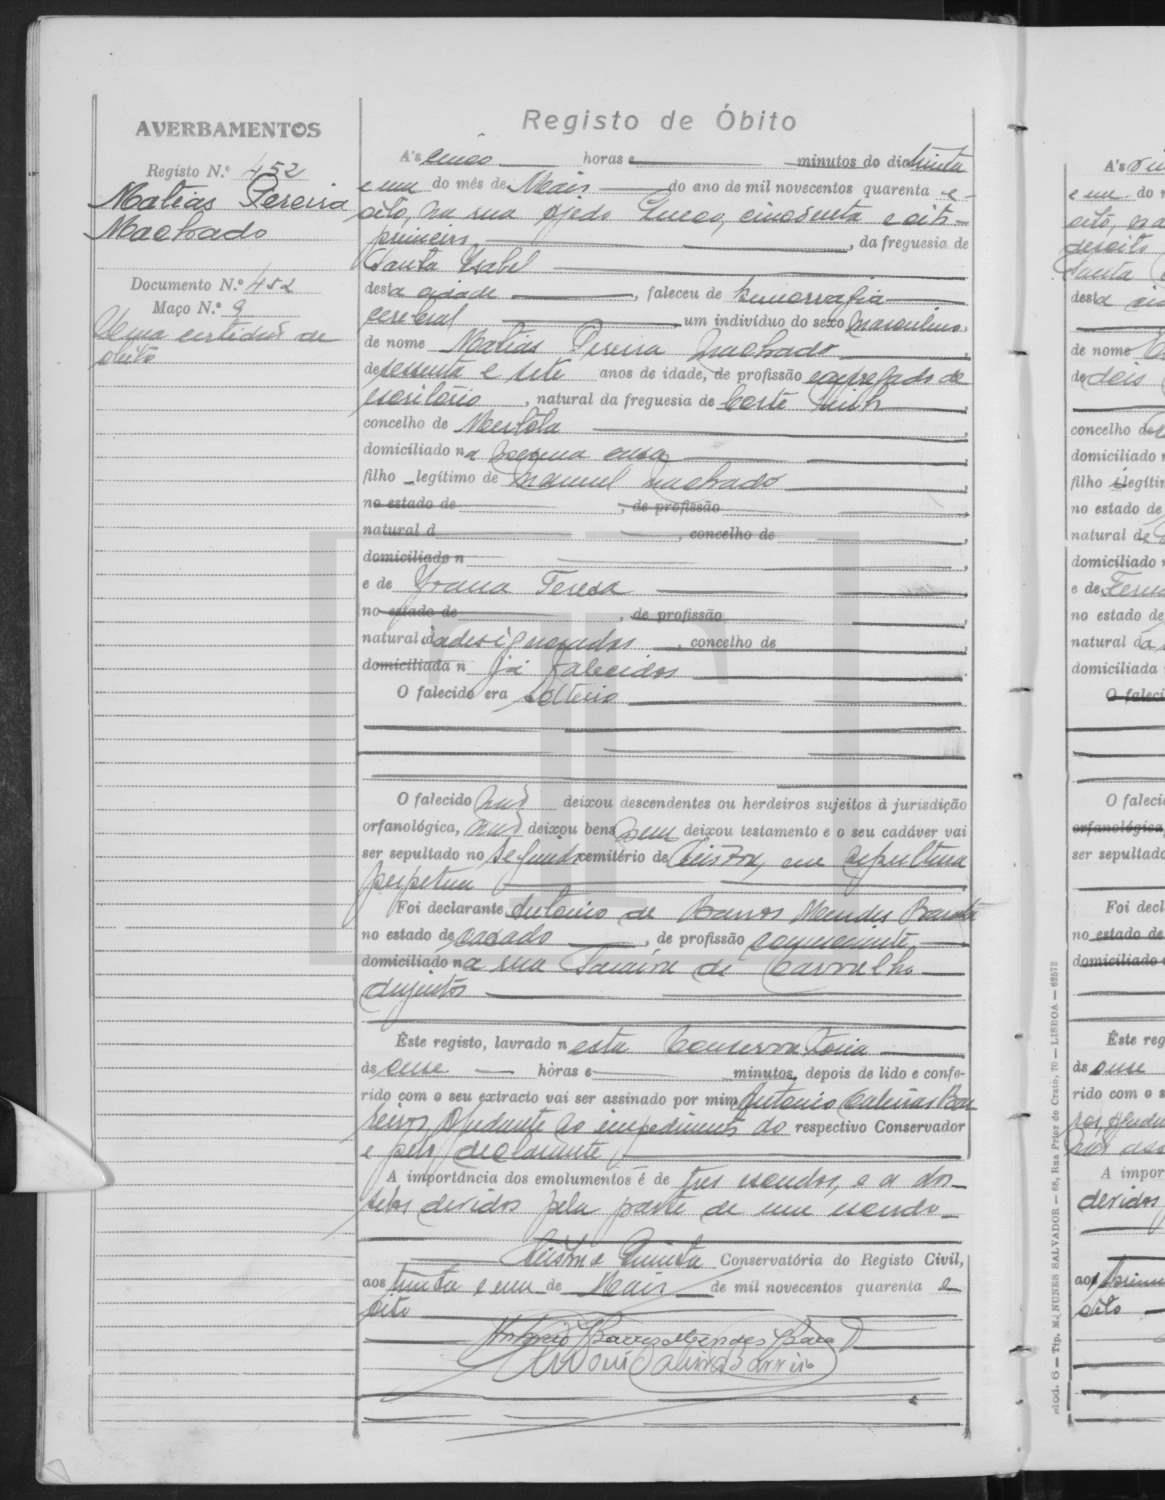 AVERBAMENTOS
Registo N.º 452
Matias Pereira
Machado
Documento N.º 452
Maço N.º 9
Uma certidão de
óbito
Registo de Óbito
A's cinco horas e minutos do dia trinta
e um do mês de Maio do ano de mil novecentos quarenta e
oito, na sua cincoenta e oito
primeiro, da freguesia de
Santa Isabel
desta cidade, faleceu de hemorragia
cerebral um indivíduo do sexo masculino,
de nome Matias Pereira Machado,
de sessenta e sete anos de idade, de profissão empregado de
escritório, natural da freguesia de Corte
concelho de Mertola
domiciliado na mesma casa
filho legítimo de Manuel Machado
no estado de, de profissão
natural d, concelho de
domiciliado n
e de Joana Teresa
no estado de, de profissão
natural, concelho de
domiciliada n já falecidos
O falecido era solteiro
O falecido não deixou descendentes ou herdeiros sujeitos à jurisdição
orfanológica, não deixou bens nem deixou testamento e o seu cadáver vai
ser sepultado no segundo cemitério de Lisboa, em sepultura
perpetua
Foi declarante Antonio de Barros Mendes
no estado de casado, de profissão comerciante,
domiciliado na rua Saraiva de Carvalho
duzentos
Êste registo, lavrado nesta Conservatoria
às onse horas e minutos, depois de lido e confe-
rido com o seu extracto vai ser assinado por mim, Antonio
Ajudante no impedimento do respectivo Conservador
e pelo declarante,
A importância dos emolumentos é de tres escudos, e a dos
selos devidos pela parte de um escudo
Lisboa e Quinta Conservatória do Registo Civil,
aos trinta e um de Maio de mil novecentos quarenta e
oito
Antonio Barros Mendes
Mod. 6 — Tip. M. NUNES SALVADOR — 68, Rua Prior do Crato, 70 — LISBOA — 62572
A's
e um do
oito, na
desoito
Santa
desta
de nome
de dois
concelho de
domiciliado
filho ilegítim
no estado de
natural da
domiciliado
e de
no estado de
natural da
domiciliada
O faleci
O faleci
orfanológica
ser sepultado
Foi decl
no estado de
domiciliado
Êste reg
às onse
rido com o s
A impor
devidos
aos
oito